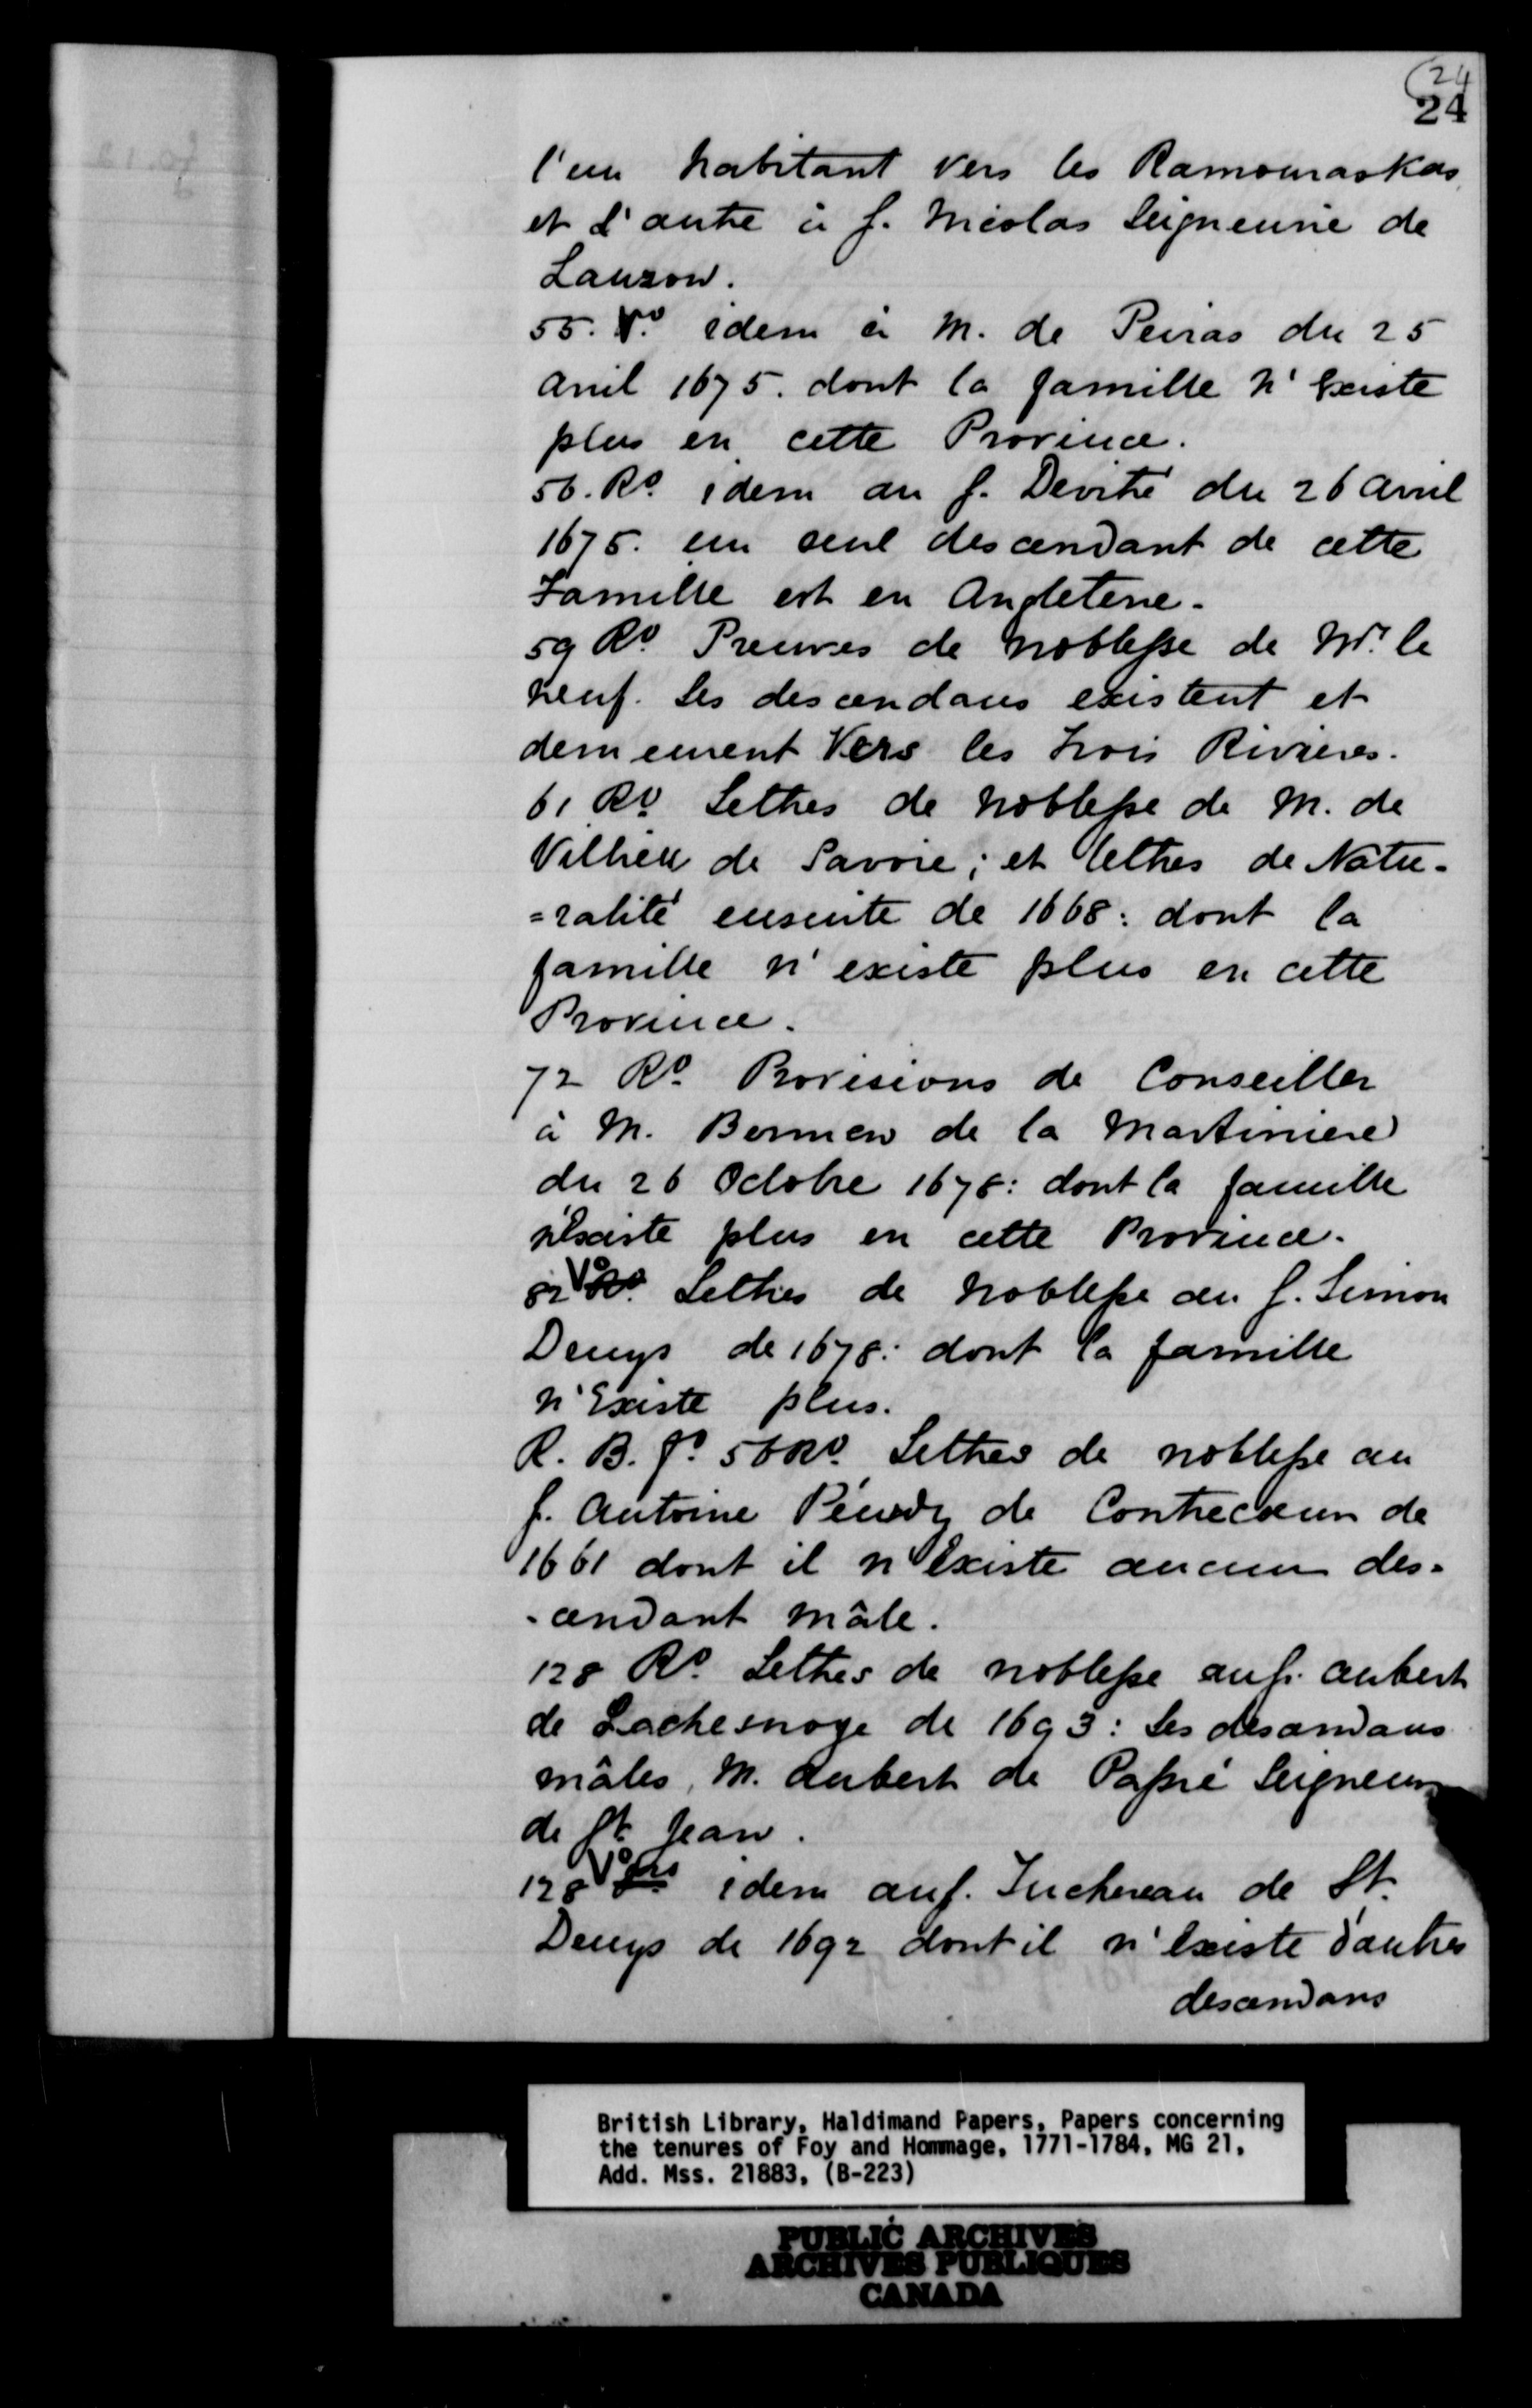 24
24
l'un habitant vers les Kamouraskas
et l'autre à S. Nicolas Seigneurie de
Lauzon.
55. Vº idem à M. de Peiras du 25
avril 1675. dont la famille n'Existe
plus en cette Province.
56. Rº idem au S. Devitré du 26 avril
1675. un seul descendant de cette
Famille est en Angleterre.
59 Rº Preuves de Noblesse de Mr. le
neuf. Ses descendans existent et
demeurent Vers les trois Rivieres.
61 Rº Lettres de Noblesse de M. de
Villieu de Savoie; et lettres de Natu-
=ralité ensuite de 1668: dont la
famille n'existe plus en cette
Province.
72 Rº Provisions de Conseiller
à M. Bermen de la Martiniere
du 26 Octobre 1678: dont la famille
n'Existe plus en cette Province.
82 Vº Lettres de Noblesse au S. Simon
Denys de 1678: dont la famille
n'Existe plus.
R. B. fº 56 Rº Lettres de noblesse au
S. Antoine Pécody de Contrecœur de
1661 dont il n'Existe aucun des-
-cendant mâle.
128 Rº Lettres de noblesse au S. Aubert
de Lachesnaye de 1693: Ses descendans
mâles, M. Aubert de Gaspé Seigneur
de St Jean.
128 Vº idem au S. Juchereau de St.
Denys de 1692 dont il n'Existe d'autres
descendans
British Library, Haldimand Papers, Papers concerning
the tenures of Foy and Hommage, 1771-1784, MG 21,
Add. Mss. 21883, (B-223)
PUBLIC ARCHIVES
ARCHIVES PUBLIQUES
CANADA